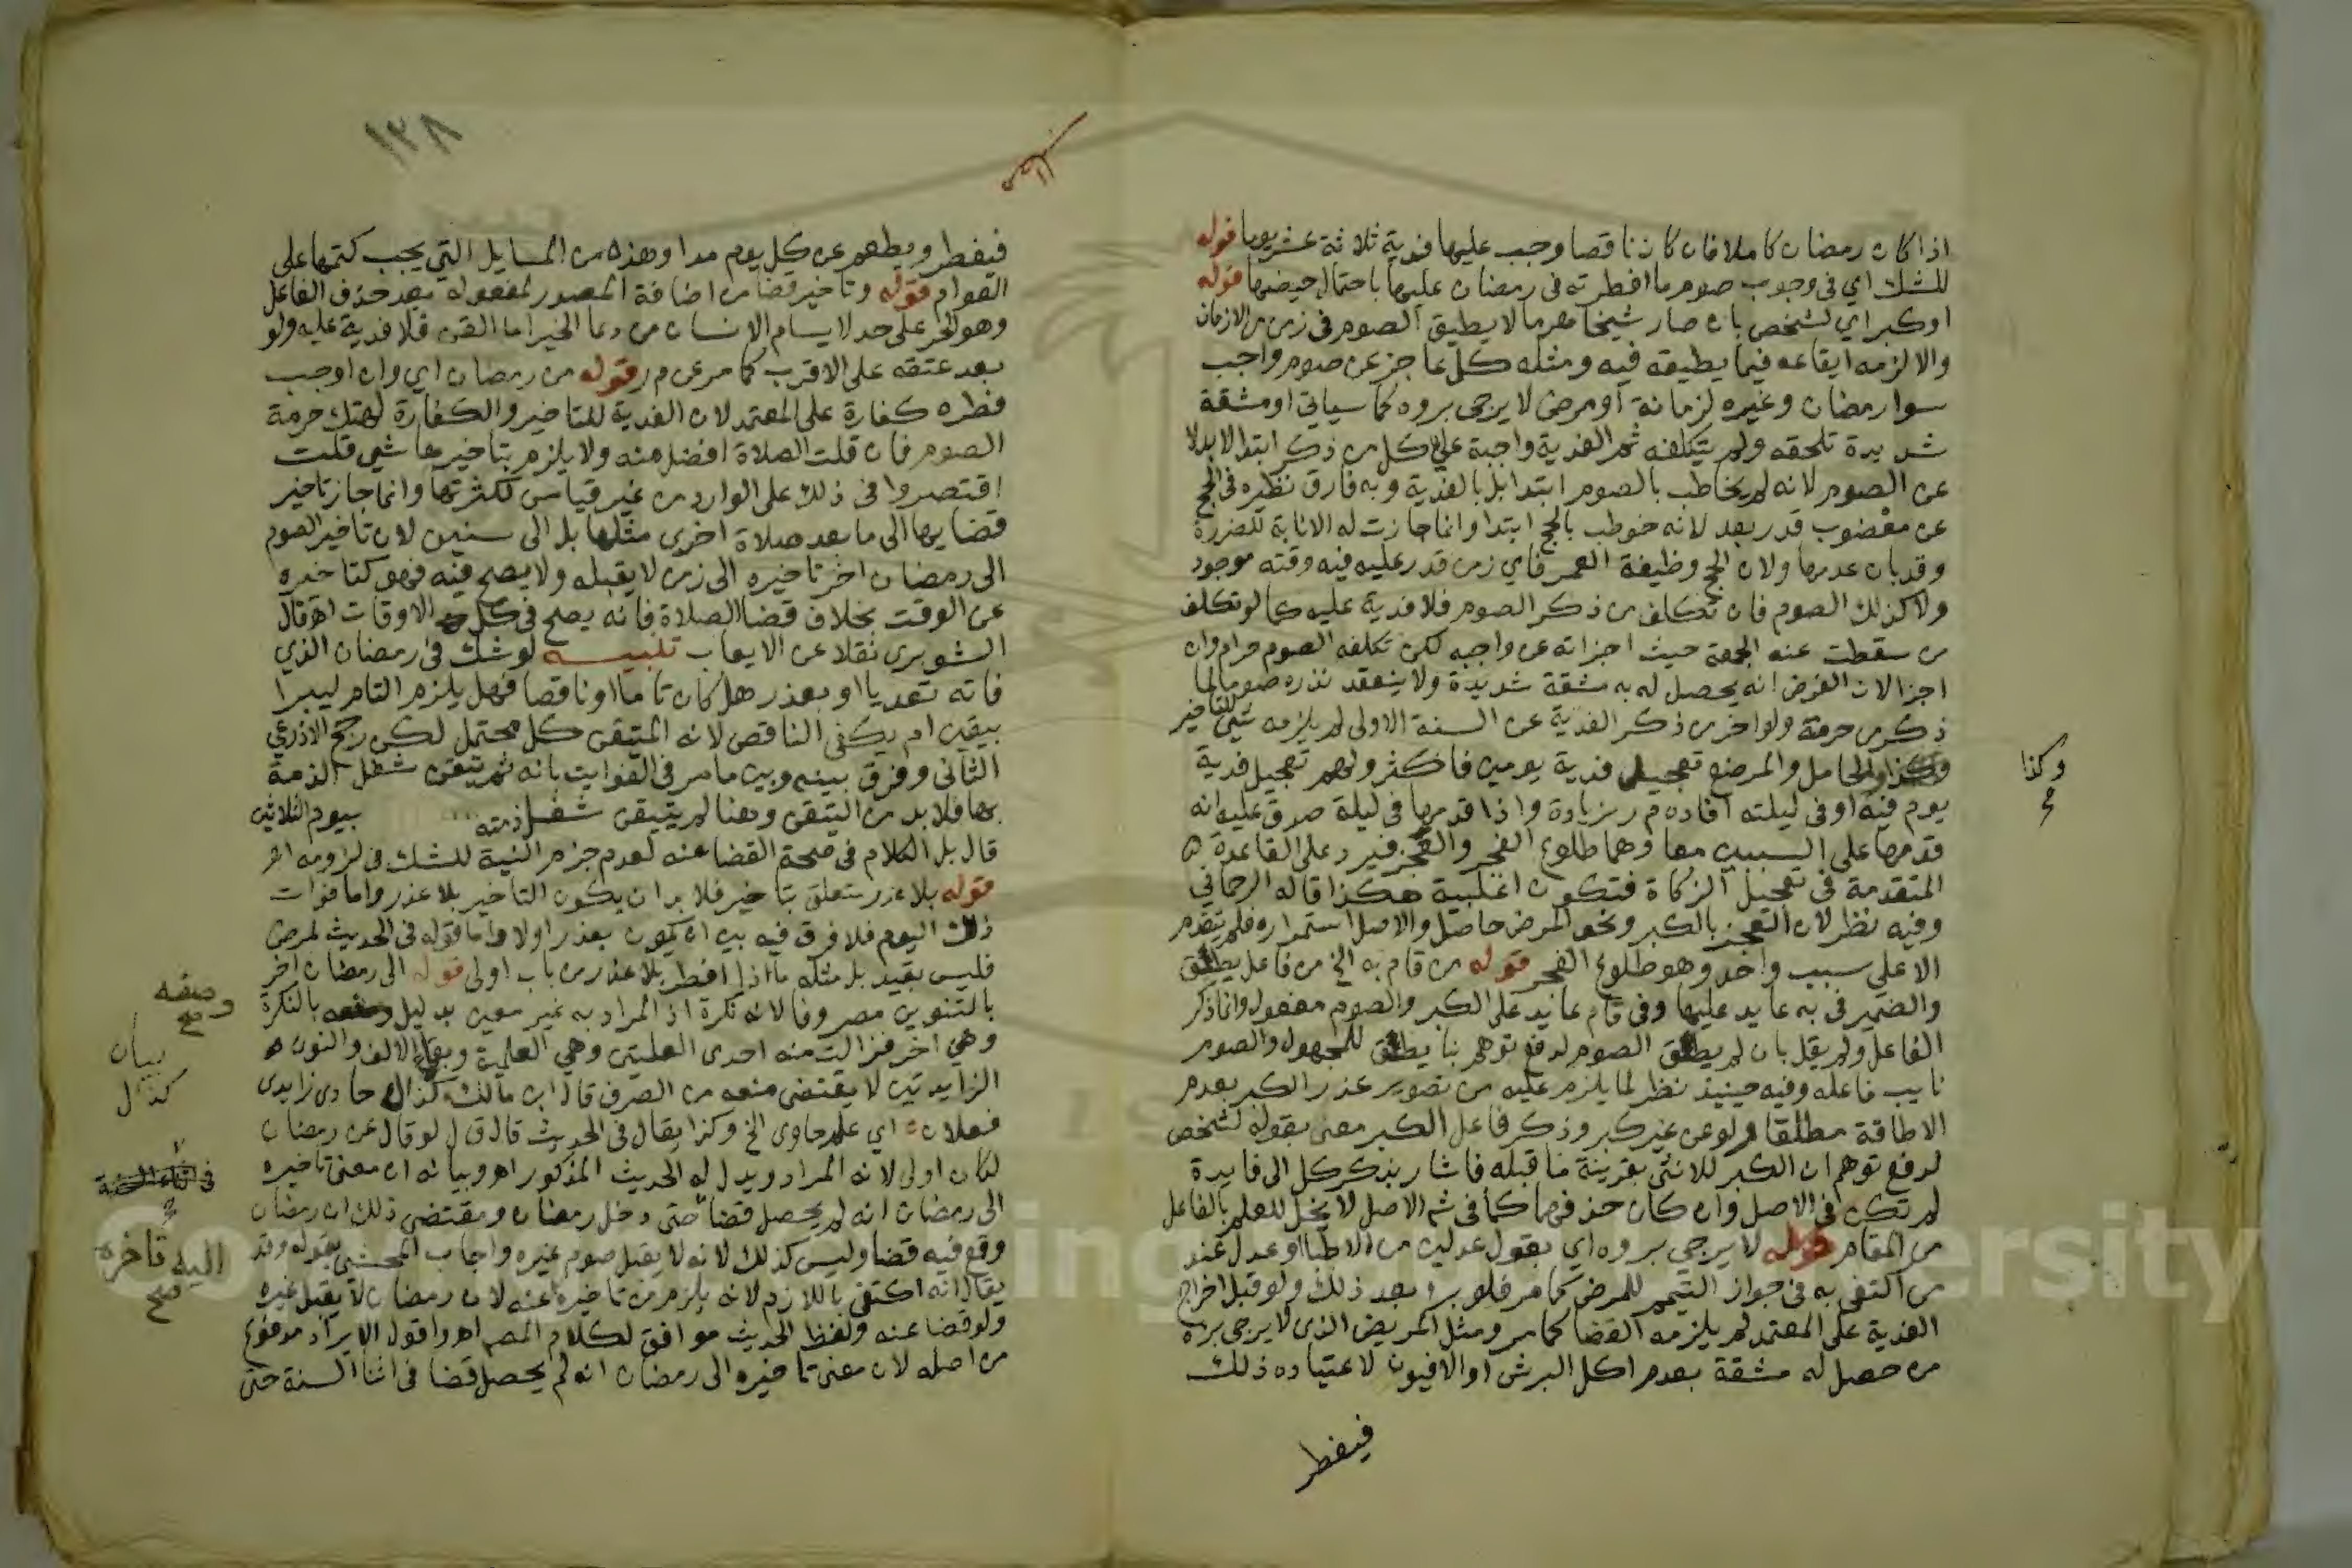 اذا كان رمضان كاملا فان كان ناقصا وجب عليها فدية ثلاثة عشر يوما قوله
للشك اي في وجوب صوم ما افطرته في رمضان عليها باحتمال حيضها قوله
او كبر اي لشخص بان صار شيخا هرما لا يطيق الصوم في زمن من الازمان
والا لزمه ايقاعه فيما يطيقه فيه ومثله كل عاجز عن صوم واجب
سوا رمضان وغيره لزمانة او مرض لا يرجى بروه كما سياتي او مشقة
شديدة تلحقه ولم يتكلفه ثم الفدية واجبة على كل من ذكر ابتدا لا بدلا
عن الصوم لانه لم يخاطب بالصوم ابتدا بل بالفدية وبه فارق نظيره في الحج
عن معضوب قدر بعد لانه خوطب بالحج ابتدا وانما جازت له الانابة للضرورة
وقد بان عدمها ولان الحج وظيفة العمر فاي زمن قدر عليه فيه وقته موجود
ولا كذلك الصوم فان تكلف من ذكر الصوم فلا فدية عليه كما لو تكلف
من سقطت عنه الجمعة حيث اجزاته عن واجبه لكن تكلفه الصوم حرام وان
اجزا لان الفرض انه يحصل له به مشقة شديدة ولا ينعقد نذره صوما لما
ذكر من حرمة ولو اخر من ذكر الفدية عن السنة الاولى لم يلزمه شي للتاخير
وكذا الحامل والمرضع تعجيل فدية يومين فاكثر ولهم تعجيل فدية
يوم فيه او في ليلته افاده م ر بزيادة واذا قدمها في ليلة صدق عليه انه
قدمها على السببين معا وهما طلوع الفجر والعجز فيرد على القاعدة
المتقدمة في تعجيل الزكاة فتكون اغلبية هكذا قاله الرحماني
وفيه نظر لان العجز بالكبر ونحو المرض حاصل والاصل استمراره فلم يتقدم
الا على سبب واحد وهو طلوع الفجر قوله من قام به الخ من فاعل يطيق
والضمير في به عايد عليها وفي قام عايد على الكبر والصوم مفعول وانما ذكر
الفاعل ولم يقل بان لم يطق الصوم لدفع توهم بنا يطق للمجهول والصوم
نايب فاعله وفيه حينيذ نظر لما يلزم عليه من تصوير عذر الكبر بعدم
الاطاقة مطلقا ولو عن غير كبر وذكر فاعل الكبر معنى بقوله لشخص
لدفع توهم ان الكبر للانثى بقرينة ما قبله فاشار بذكر كل الى فايدة
لم تكن في الاصل وان كان حذفهما كما في ثم الاصل لا يخل للعلم بالفاعل
من المقام قوله لا يرجى بروه اي بقول عدلين من الاطبا او عدل عند
من اكتفى به في جواز التيمم للمرض كما مر فلو برء بعد ذلك ولو قبل اخراج
الفدية على المعتمد لم يلزمه القضا كما مر ومثل المريض الذي لا يرجى بره
من حصل له مشقة بعدم اكل البرش او الافيون لاعتياده ذلك
فيفطر
وكذا
صح
١٣٨
فيفطر ويطعم عن كل يوم مدا وهذه من المسايل التي يجب كتمها على
العوام قوله وتاخير قضا من اضافة المصدر لمفعوله بعد حذف الفاعل
وهو الحر على حد لا يسام الانسان من دعا الخير اما القن فلا فدية عليه ولو
بعد عتقه على الاقرب كما مر عن م ر قوله من رمضان اي وان اوجب
فطره كفارة على المعتمد لان الفدية للتاخير والكفارة لهتك حرمة
الصوم فان قلت الصلاة افضل منه ولا يلزم بتاخيرها شي قلت
اقتصروا في ذلك على الوارد من غير قياس لكثرتها وانما جاز تاخير
قضايها الى ما بعد صلاة اخرى مثلها بل الى سنين لان تاخير الصوم
الى رمضان اخر تاخيره الى زمن لا يقبله ولا يصح فيه فهو كتاخيره
عن الوقت بخلاف قضا الصلاة فانه يصح في كل الاوقات اهـ قال
الشوبري نقلا عن الايعاب تنبيه لو شك في رمضان الذي
فاته تعديا او بعذر هل كان تاما او ناقصا فهل يلزم التام ليبرا
بيقين ام يكفي الناقص لانه المتيقن كل محتمل لكن رجح الاذرعي
الثاني وفرق بينه وبين ما مر في الفوايت بانه ثم تيقن شغل الذمة
بها فلا بد من التيقن وهنا لم يتيقن شغل ذمته بيوم الثلاثين
قال بل الكلام في صحة القضا عنه لعدم جزم النية للشك في لزومه اهـ
قوله بلا عذر متعلق بتاخير فلا بد ان يكون التاخير بلا عذر واما فوات
ذلك اليوم فلا فرق فيه بين ان يكون بعذر او لا واما قوله في الحديث لمرض
فليس بقيد بل مثله ما اذا افطر بلا عذر من باب اولى قوله الى رمضان اخر
بالتنوين مصروفا لانه نكرة اذ المراد به غير معين بدليل وصفه بالنكرة
وهي اخر فزالت منه احدى العلتين وهي العلمية وبقا الالف والنون
الزايدتين لا يقتضي منعه من الصرف قال ابن مالك كذاك حاوي زايدي
فعلان اي علم حاوي الخ وكذا يقال في الحديث قال ق ل لو قال عن رمضان
لكان اولى لانه المراد ويدل له الحديث المذكور اهـ وبيانه ان معنى تاخيره
الى رمضان انه لم يحصل قضا حتى دخل رمضان ومقتضى ذلك ان رمضان
وقع فيه قضا وليس كذلك لانه لا يقبل صوم غيره واجاب المحشي بقوله وقد
يقال انه اكتفى باللازم لانه يلزم من تاخيره عنه لان رمضان لا يقبل غيره
ولو قضا عنه ولفظ الحديث موافق لكلام المص اهـ واقول الايراد مدفوع
من اصله لان معنى تاخيره الى رمضان انه لم يحصل قضا في اثنا السنة حتى
وصفه
صح
بيان
كذاك
اليه تاخره
صح